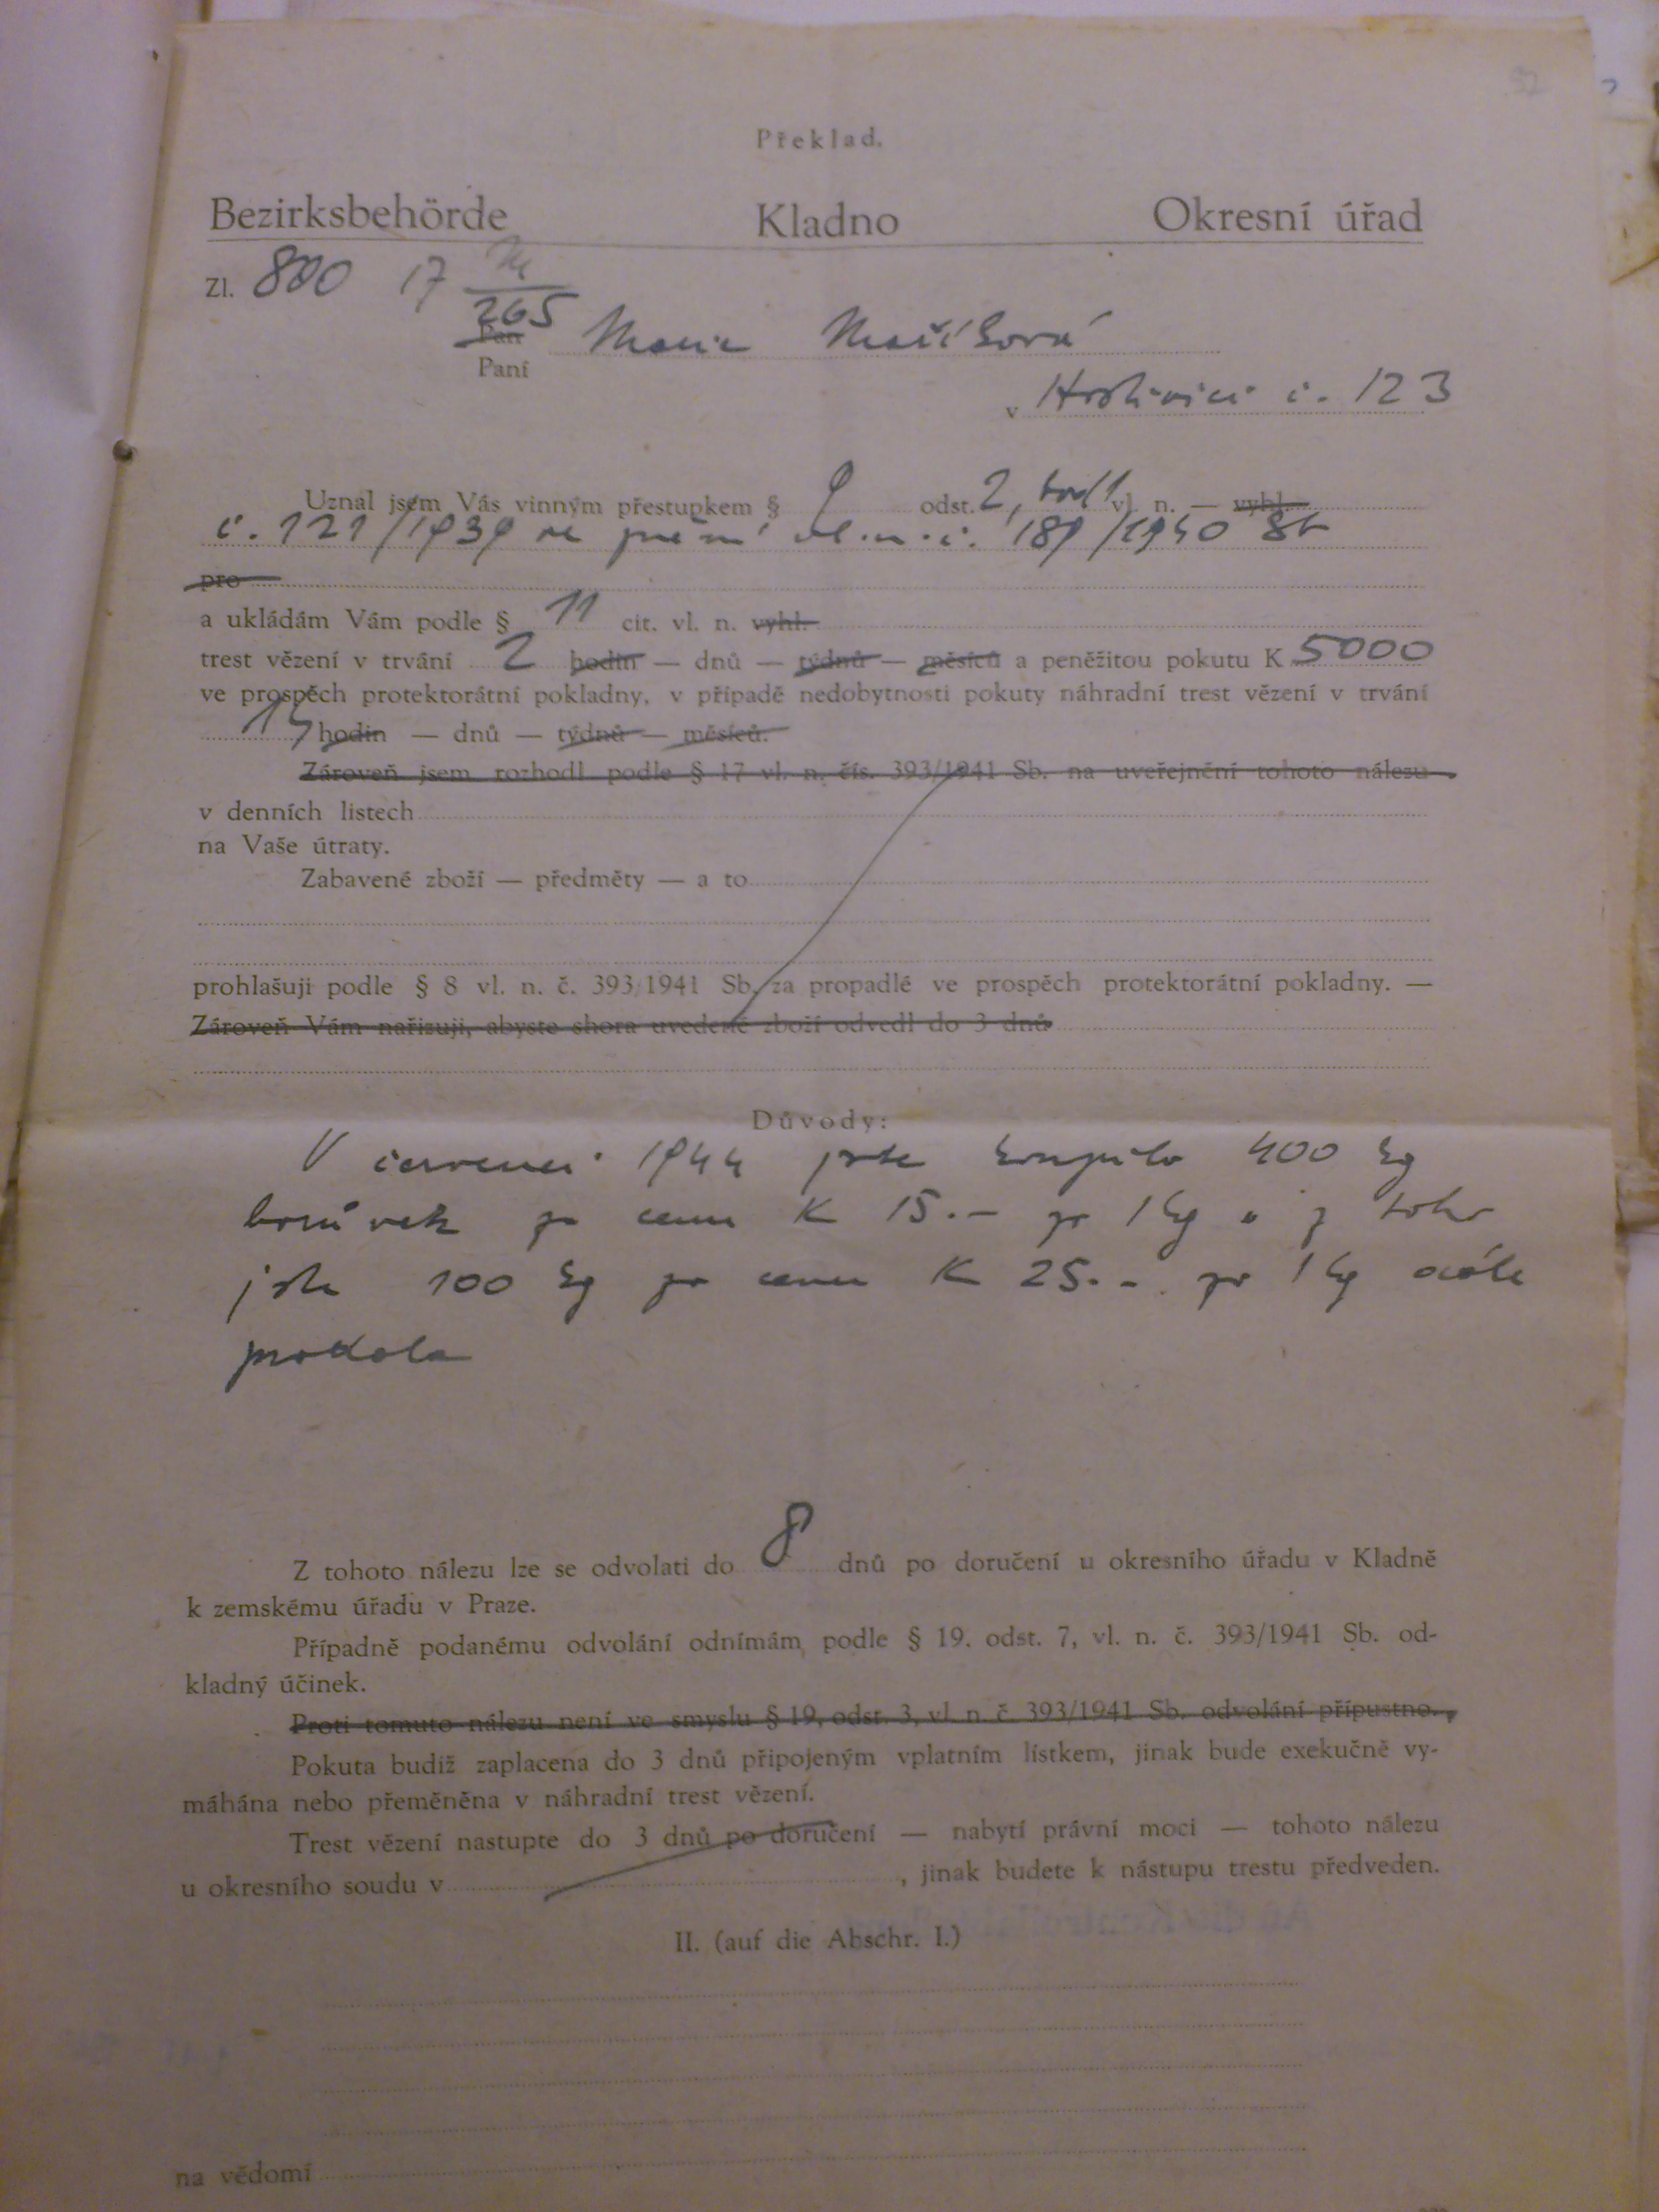 Překlad.
Bezirksbehörde Kladno Okresní úřad
Zl. 800 17 M
265
Pan
Paní Marie Mašíková
v Hostivici č. 123
Uznal jsem Vás vinným přestupkem § 9 odst. 2, bod 1 vl. n. — vyhl.
č. 121/1939 ve znění vl. n. č. 189/1940 Sb
pro
a ukládám Vám podle § 11 cit. vl. n. vyhl.
trest vězení v trvání 2 hodin — dnů — týdnů — měsíců a peněžitou pokutu K 5000
ve prospěch protektorátní pokladny, v případě nedobytnosti pokuty náhradní trest vězení v trvání
14 hodin — dnů — týdnů — měsíců.
Zároveň jsem rozhodl podle § 17 vl. n. čís. 393/1941 Sb. na uveřejnění tohoto nálezu
v denních listech
na Vaše útraty.
Zabavené zboží — předměty — a to
prohlašuji podle § 8 vl. n. č. 393/1941 Sb. za propadlé ve prospěch protektorátní pokladny. —
Zároveň Vám nařizuji, abyste shora uvedené zboží odvedl do 3 dnů
Důvody:
V červenci 1944 jste koupila 400 kg
borůvek za cenu K 15.– za 1 kg a z toho
jste 100 kg za cenu K 25.– za 1 kg dále
prodala
Z tohoto nálezu lze se odvolati do 8 dnů po doručení u okresního úřadu v Kladně
k zemskému úřadu v Praze.
Případně podanému odvolání odnímám podle § 19. odst. 7, vl. n. č. 393/1941 Sb. od-
kladný účinek.
Proti tomuto nálezu není ve smyslu § 19, odst. 3, vl. n. č. 393/1941 Sb. odvolání přípustno.
Pokuta budiž zaplacena do 3 dnů připojeným vplatním lístkem, jinak bude exekučně vy-
máhána nebo přeměněna v náhradní trest vězení.
Trest vězení nastupte do 3 dnů po doručení — nabytí právní moci — tohoto nálezu
u okresního soudu v , jinak budete k nástupu trestu předveden.
II. (auf die Abschr. I.)
na vědomí